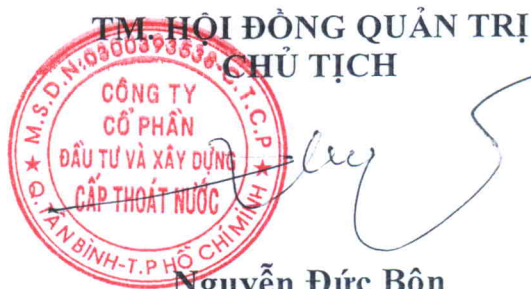 TM. HỘI ĐỒNG QUẢN TRỊ
CHỦ TỊCH
M.S.D.N:0300393538-C.T.C.P
CÔNG TY
CỔ PHẦN
ĐẦU TƯ VÀ XÂY DỰNG
CẤP THOÁT NƯỚC
Q. TÂN BÌNH-T.P HỒ CHÍ MINH
Nguyễn Đức Bôn